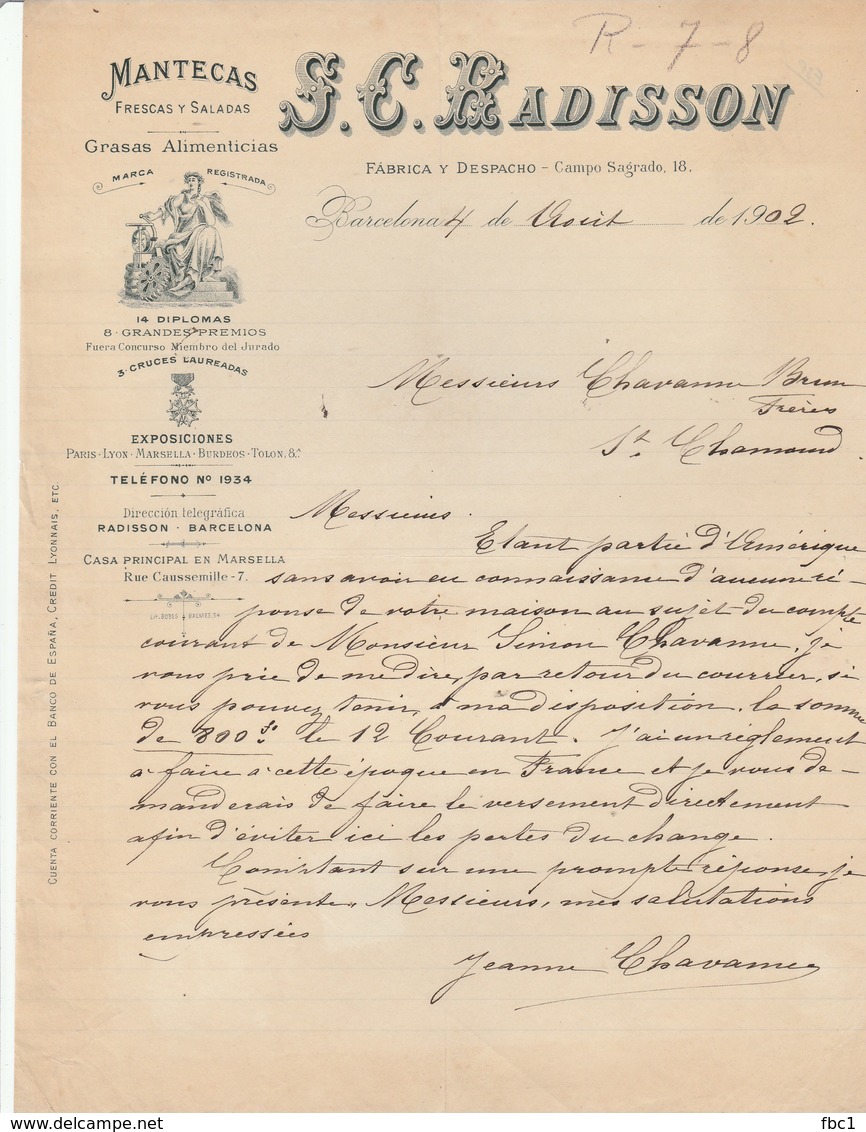 R - 7 - 8
MANTECAS
FRESCAS Y SALADAS
Grasas Alimenticias
MARCA REGISTRADA
14 DIPLOMAS
8 · GRANDES PREMIOS
Fuera Concurso Miembro del Jurado
3 · CRUCES LAUREADAS
EXPOSICIONES
PARIS · LYON · MARSELLA · BURDEOS · TOLON, &ª
TELÉFONO Nº 1934
Dirección telegráfica
RADISSON · BARCELONA
CASA PRINCIPAL EN MARSELLA
Rue Caussemille - 7.
CUENTA CORRIENTE CON EL BANCO DE ESPAÑA, CREDIT LYONNAIS, ETC.
S. C. RADISSON
FÁBRICA Y DESPACHO - Campo Sagrado, 18.
Barcelona 4 de Août de 1902.
Messieurs Chavanne Brun
Frères
St. Chamond.
Messieurs.
Etant partie d'Amérique
sans avoir eu connaissance d'aucune ré-
ponse de votre maison au sujet du compte
courant de Monsieur Simon Chavanne, je
vous prie de me dire, par retour du courrier, si
vous pouvez tenir, à ma disposition, la somme
de 800 fs. le 12 Courant. J'ai un règlement
à faire à cette époque en France et je vous de-
manderais de faire le versement directement
afin d'éviter ici les pertes du change.
Comptant sur une prompte réponse, je
vous présente, Messieurs, mes salutations
empressées
Jeanne Chavanne
fbc1